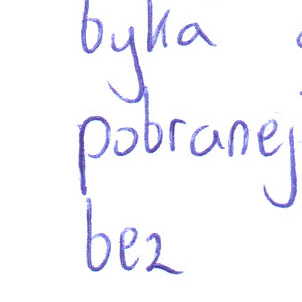 byka
pobranej
bez